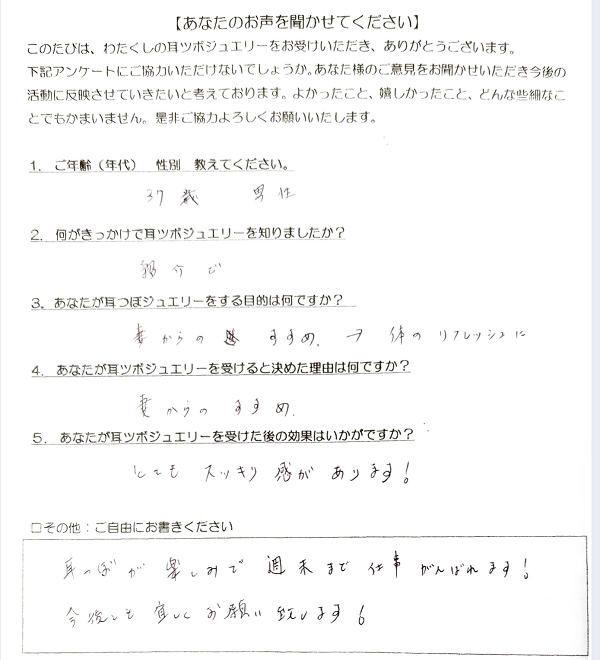 【あなたのお声を聞かせてください】
このたびは、わたくしの耳ツボジュエリーをお受けいただき、ありがとうございます。
下記アンケートにご協力いただけないでしょうか。あなた様のご意見をお聞かせいただき今後の
活動に反映させていきたいと考えております。よかったこと、嬉しかったこと、どんな些細なこ
とでもかまいません。是非ご協力よろしくお願いいたします。
1. ご年齢（年代） 性別 教えてください。
37歳 男性
2. 何がきっかけで耳ツボジュエリーを知りましたか？
紹介で
3. あなたが耳つぼジュエリーをする目的は何ですか？
妻からの すすめ. → 体の リフレッシュに
4. あなたが耳ツボジュエリーを受けると決めた理由は何ですか？
妻からの すすめ.
5. あなたが耳ツボジュエリーを受けた後の効果はいかがですか？
とても スッキリ 感が あります！
□その他：ご自由にお書きください
耳つぼが 楽しみで 週末まで 仕事 がんばれます！
今後とも 宜しく お願い 致します！